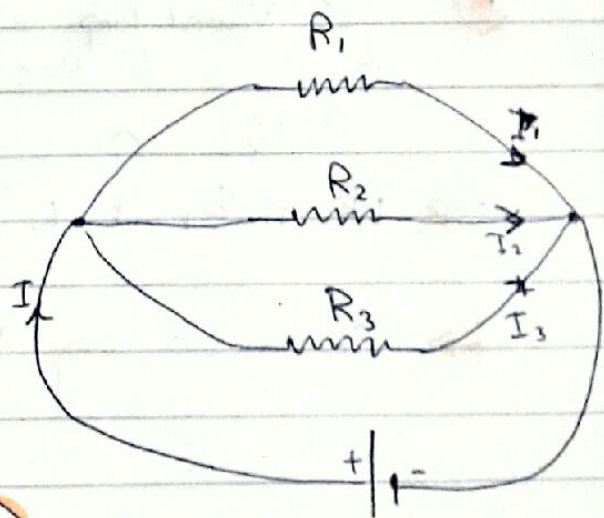 R₁
I₁
R₂
I₂
I
R₃
I₃
+ -